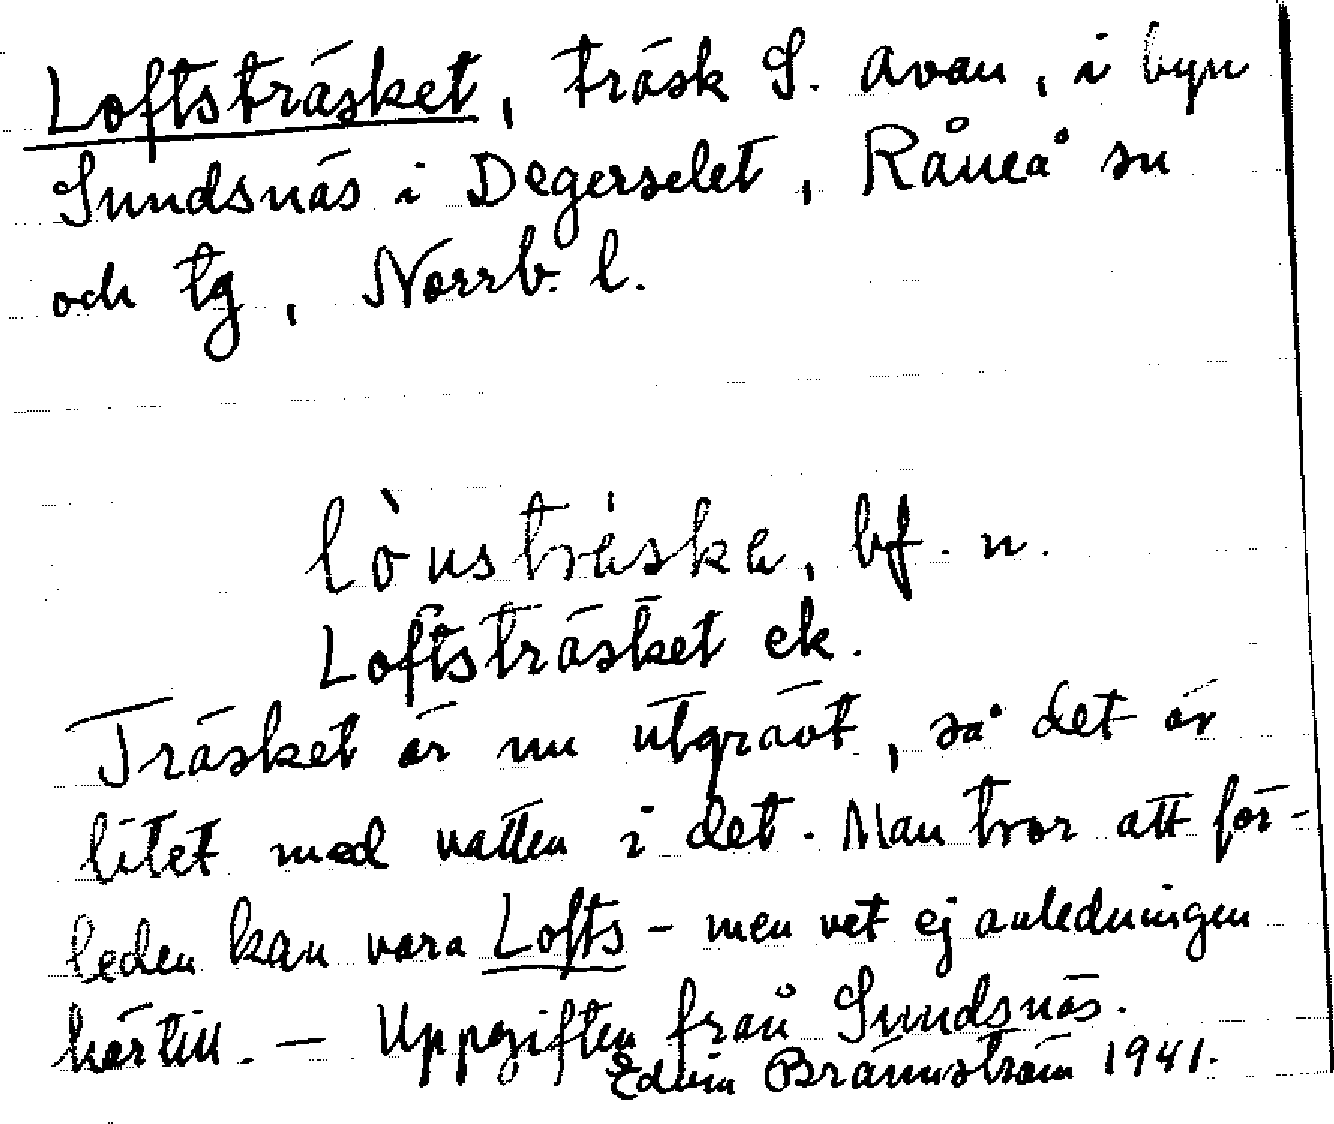 Loftsträsket, träsk S. Avan, i byn
Sundsnäs i Degerselet, Råneå sn
och tg, Norrb. l.
lòusträ́ska, bf. n.
Loftsträsket ek.
Träsket är nu utgrävt, så det är
litet med vatten i det. Man tror att för-
leden kan vara Lofts - men vet ej anledningen
härtill. — Uppgiften från Sundsnäs.
Edvin Brännström 1941.